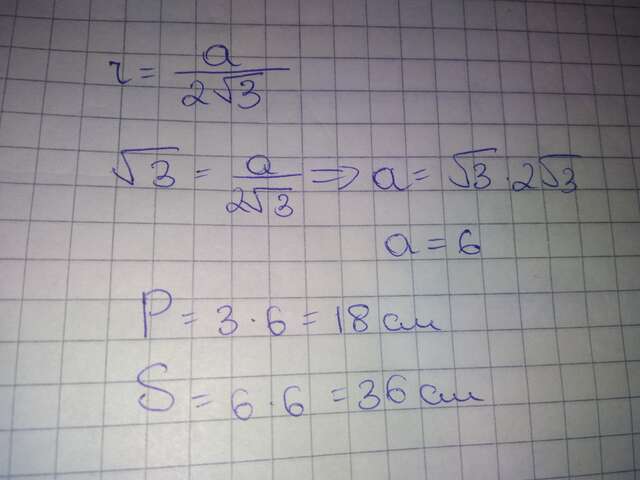 r = a / 2√3
√3 = a / 2√3 ⇒ a = √3 · 2√3
a = 6
P = 3 · 6 = 18 см
S = 6 · 6 = 36 см